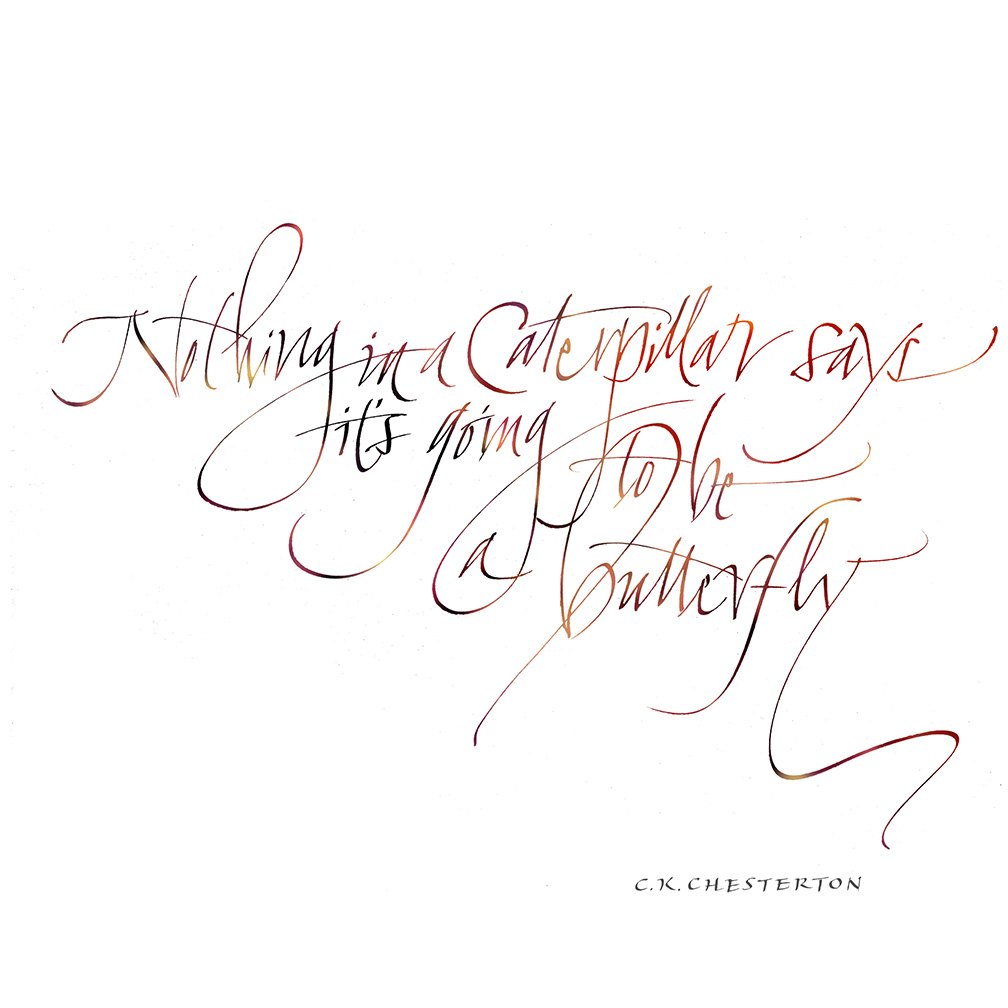 Nothing in a Caterpillar says
it's going to be
a butterfly
C.K. CHESTERTON